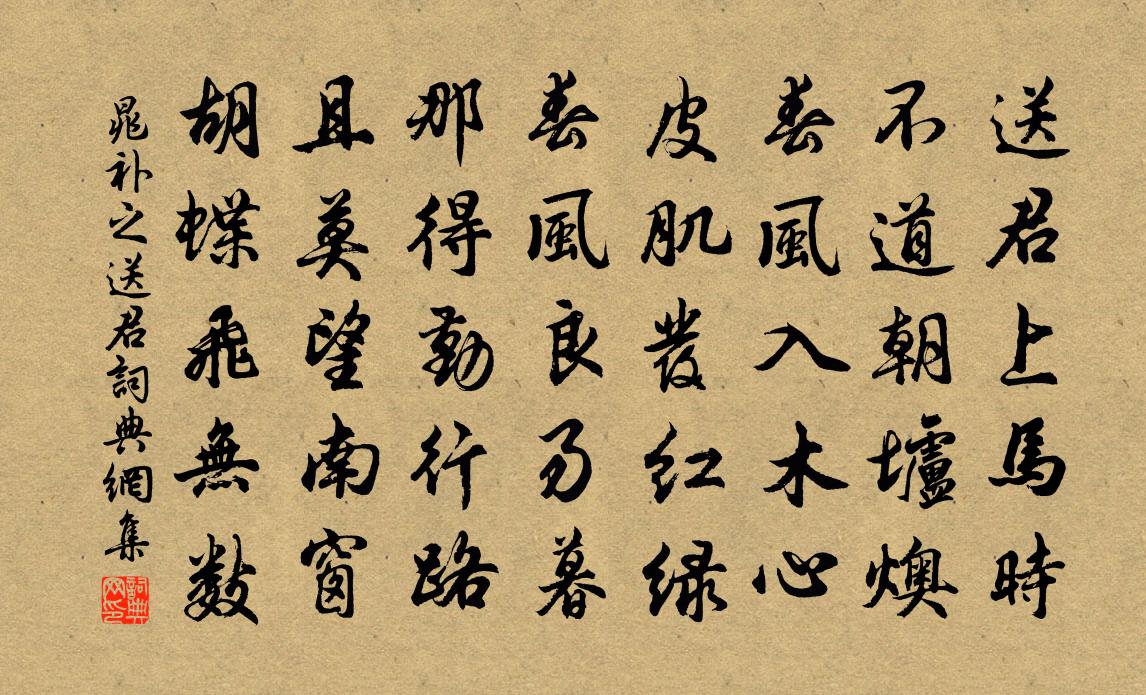 送君上馬時
不道朝壚燠
春風入木心
皮肌發紅緑
春風良易暮
那得勤行路
且莫望南窗
胡蝶飛無數
晁补之送君詞典網集
詞典网印